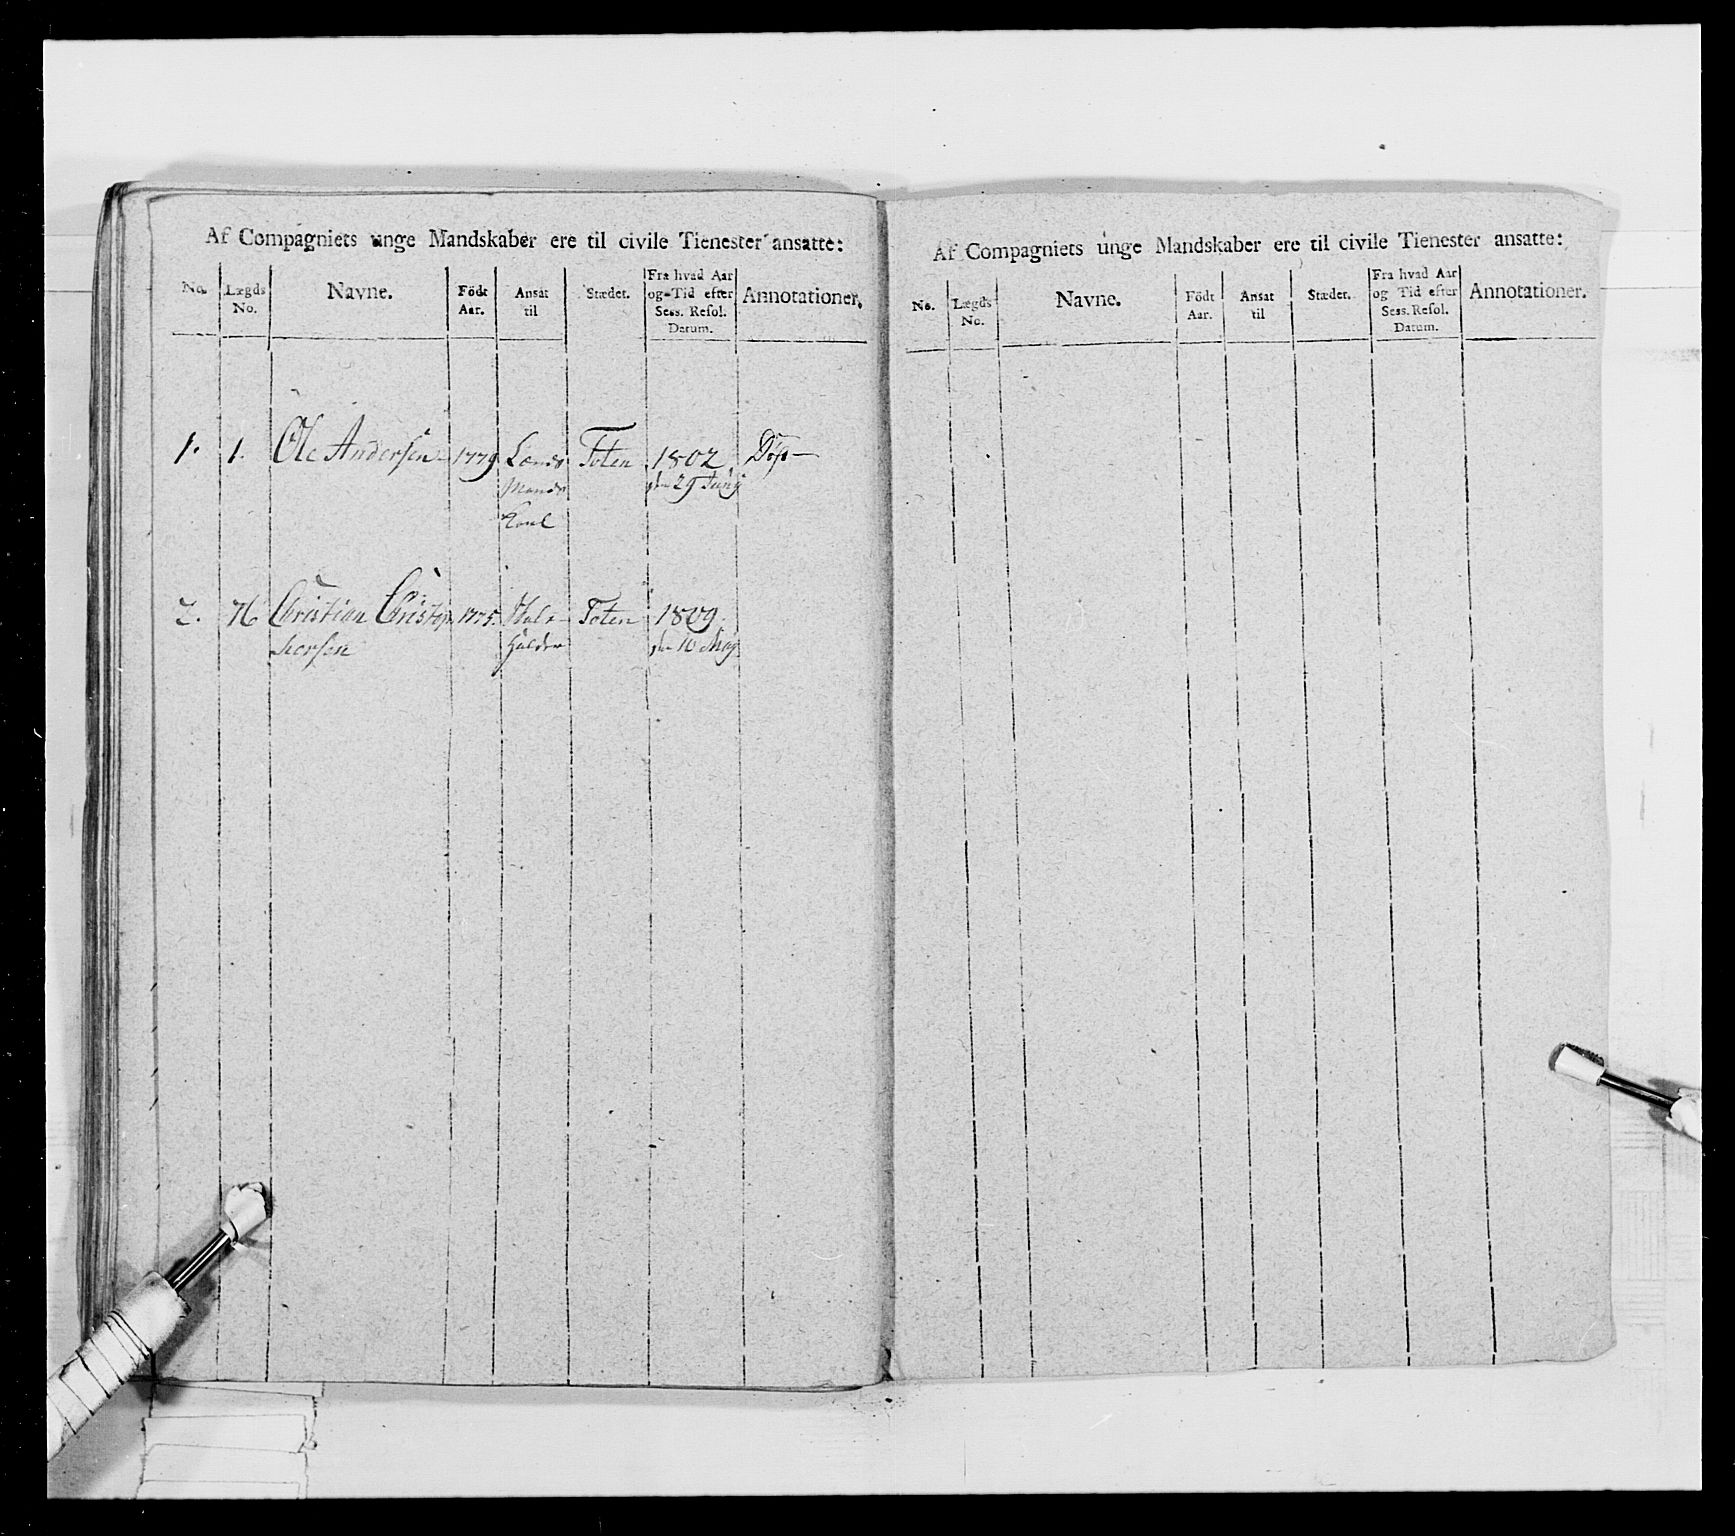 Af Compagniets unge Mandskaber ere til civile Tienester ansatte:
No. Lægds No. Navne. Födt Aar. Ansat til Stædet. Fra hvad Aar og Tid efter Sess. Resol. Datum. Annotationer.
1. 1. Ole Andersen 1779 Lænds Toten 1802
Mands den 29 Junij
2. 76 Christian Christop 1775. Skole Toten 1809.
hersen Holder den 16 Maj
Af Compagniets unge Mandskaber ere til civile Tienester ansatte:
No. Lægds No. Navne. Födt Aar. Ansat til Stædet. Fra hvad Aar og Tid efter Sess. Resol. Datum. Annotationer.